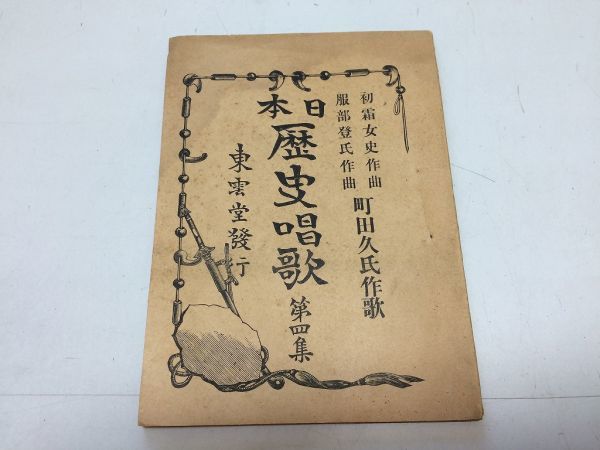 初霜女史作曲
服部登氏作曲
町田久氏作歌
日本
歴史唱歌
第四集
東雲堂發行